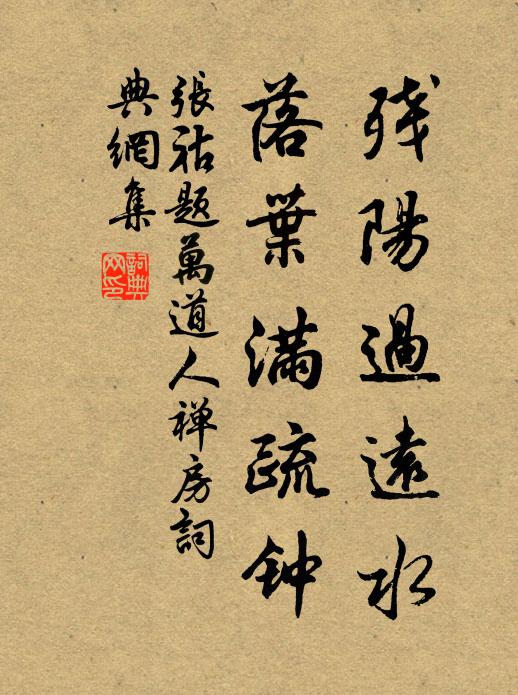 残陽過遠水
落葉滿疏钟
張祜題萬道人禅房詞
典網集
詞典
网印